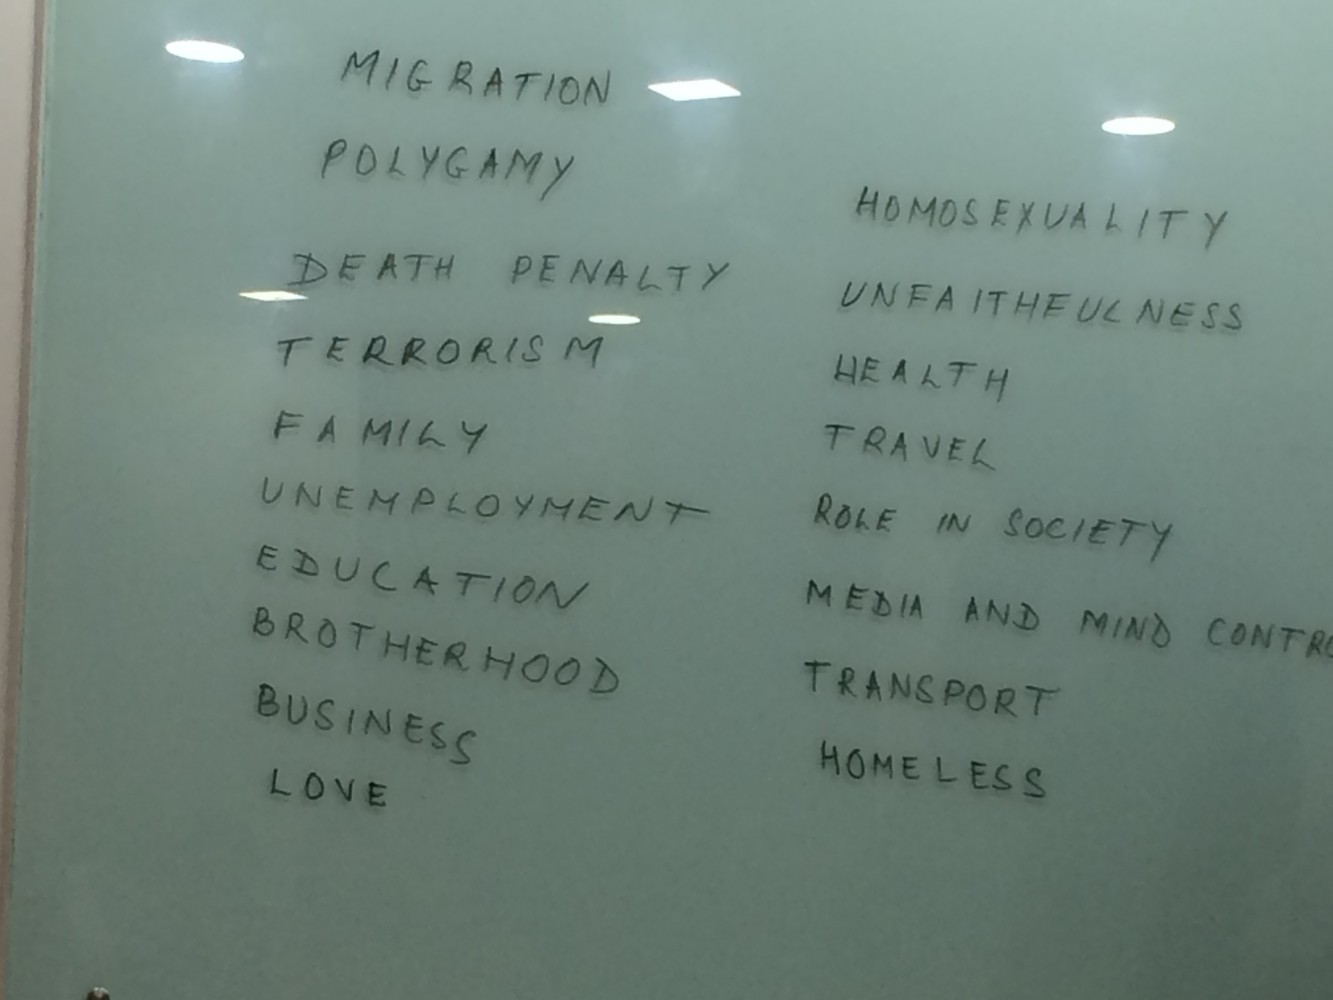 MIGRATION
POLYGAMY
DEATH PENALTY
TERRORISM
FAMILY
UNEMPLOYMENT
EDUCATION
BROTHERHOOD
BUSINESS
LOVE
HOMOSEXUALITY
UNFAITHFULNESS
HEALTH
TRAVEL
ROLE IN SOCIETY
MEDIA AND MIND CONTRO
TRANSPORT
HOMELESS